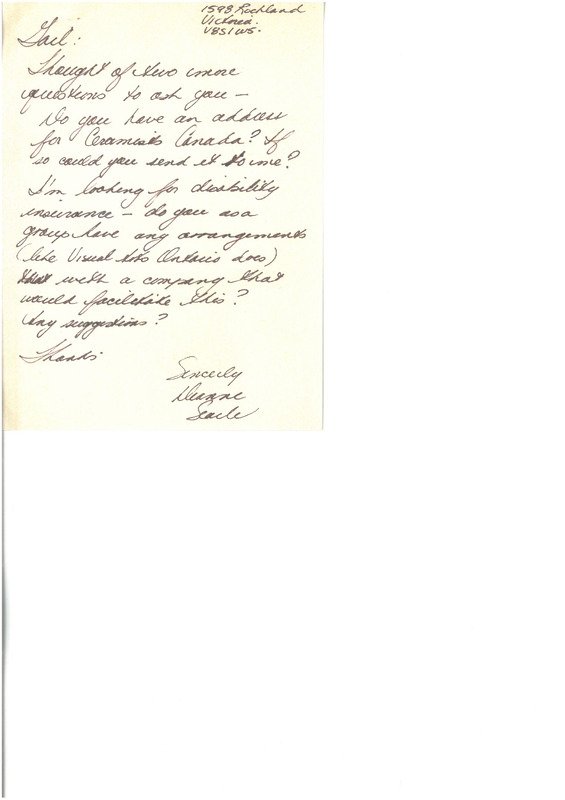 1598 Rockland
Victoria.
V8S1W5.
Gail:
Thought of two more
questions to ask you –
Do you have an address
for Ceramists Canada? If
so could you send it to me?
I'm looking for disability
insurance – do you as a
group have any arrangements
(like Visual Arts Ontario does)
that with a company that
would facilitate this?
Any suggestions?
Thanks
Sincerly
Deanne
Searle